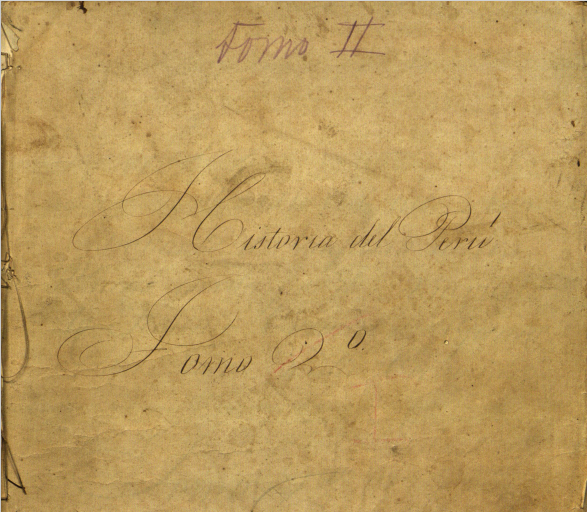 Tomo II
Historia del Perú
Tomo 2º